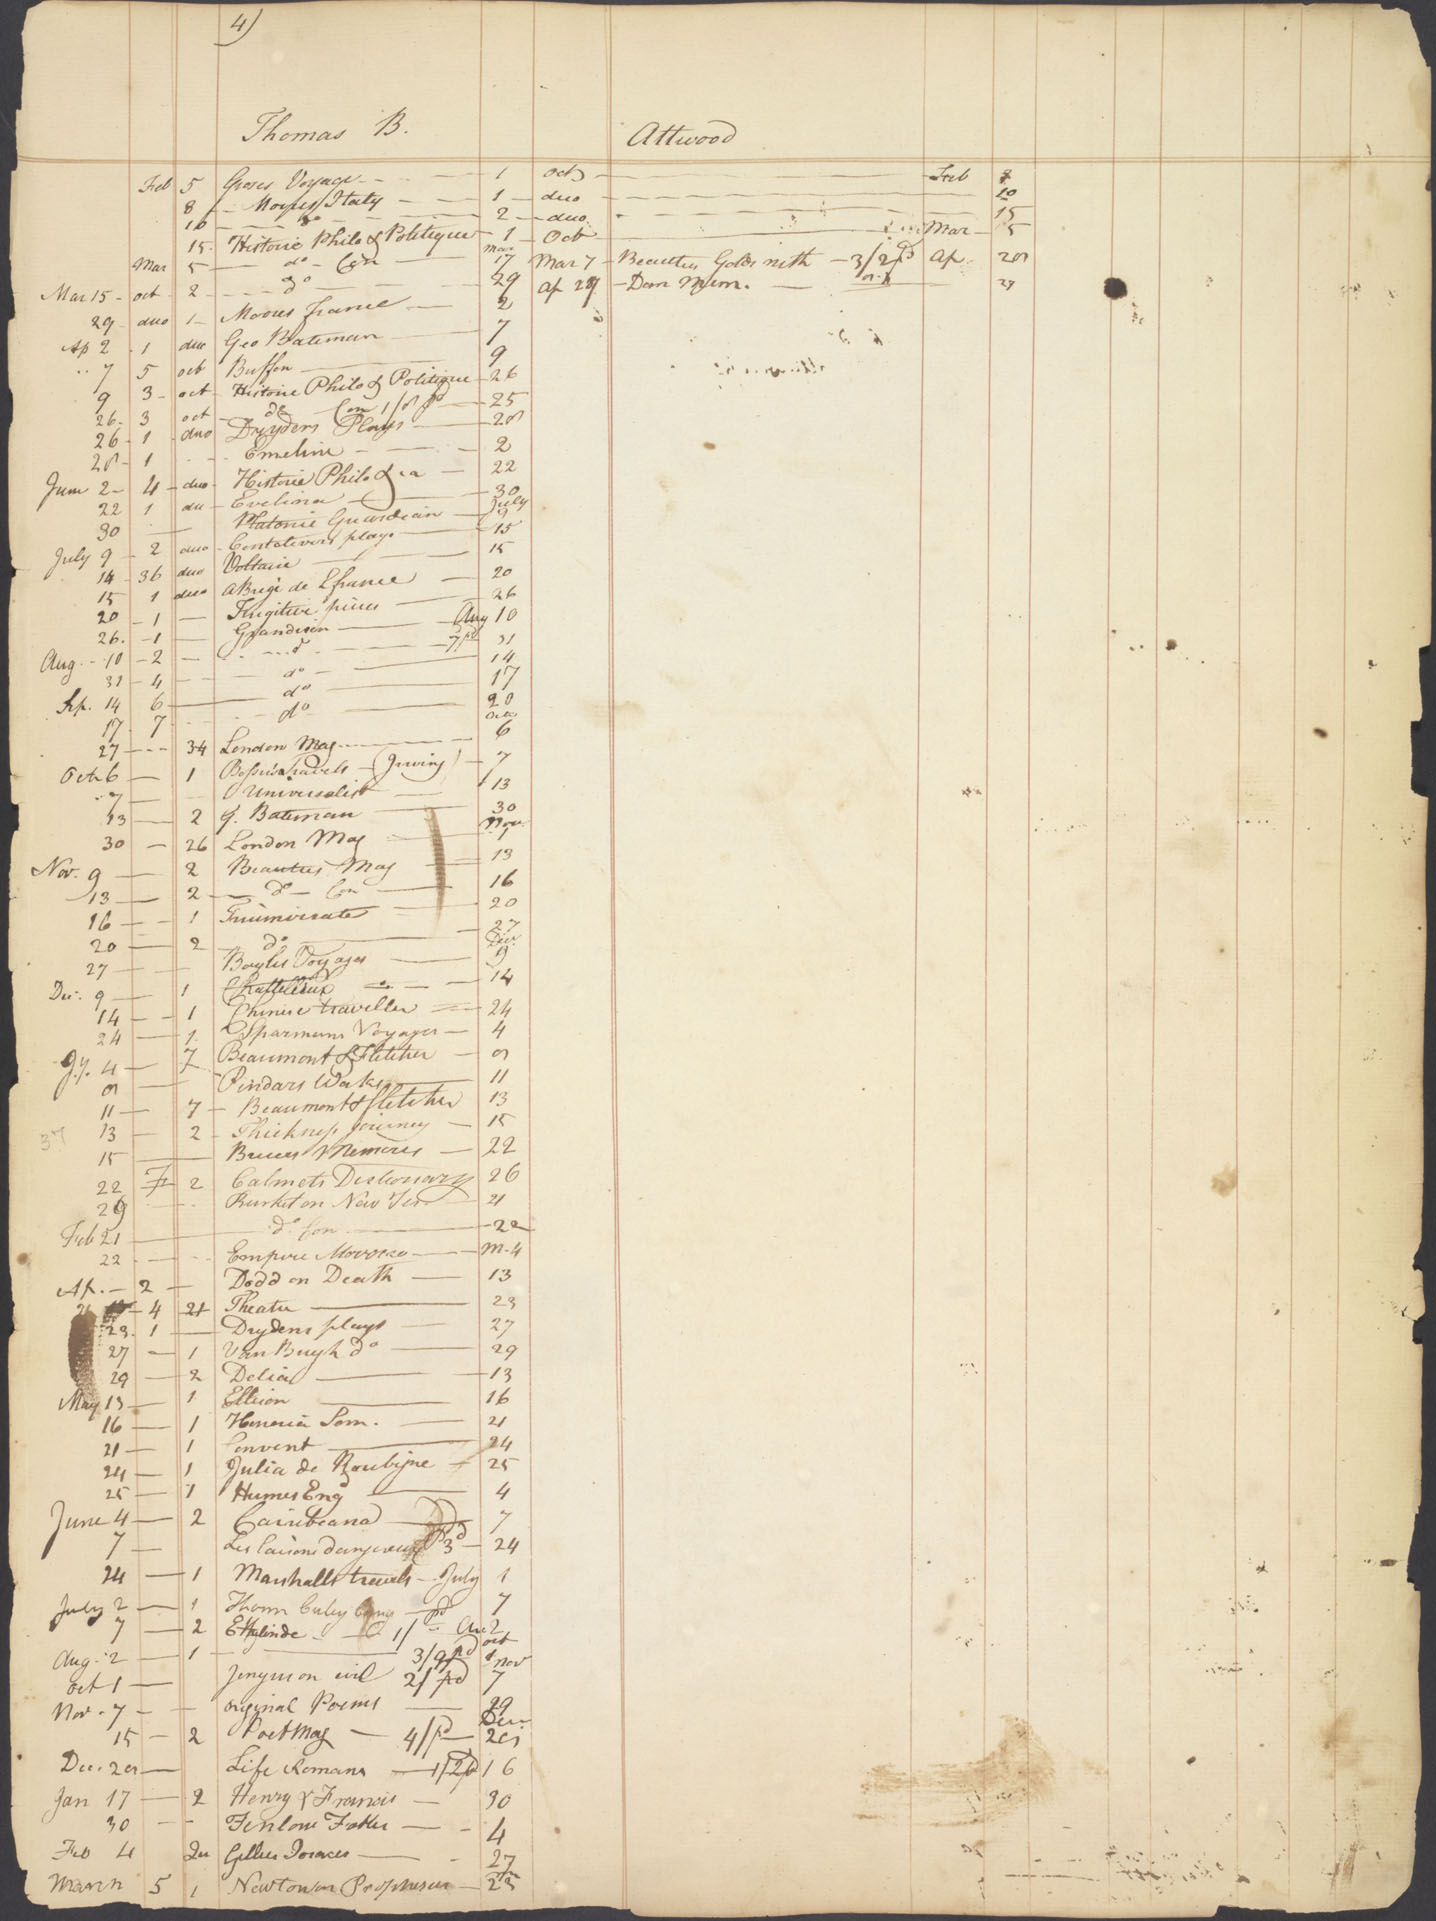 4)
Thomas B. Attwood
Feb 5 Groses Voyage 1 octo Feb 8
8 Moores Italy 1 duo 10
10 do 2 duo 15
15 Historie Philo & Politique 1 Oct Mar 5
Mar 5 do Con Mar 17 Mar 7 Beauties Goldsmith 3/2 pd Ap 28
Mar 15 oct 2 do 29 Ap 28 Dom Mem. 29
29 duo 1 Moores france 2
Ap 2 1 duo Geo Bateman 7
7 5 oct Buffon 9
9 3 oct Historie Philo & Politique 26
26 3 oct do Con 1/8 pd 25
26 1 duo Drydens Plays 28
28 1 Emeline 2
June 2 4 duo Historie Philo & ca 22
22 1 du Evelina 30
30 Platonic Guardian July 9
July 9 2 duo Centelivers plays 15
14 36 duo Voltaire 15
15 1 duo ABregé de L france 20
20 1 Fugitive pieces 26
26 1 Grandison Aug 10
Aug 10 2 do 7 pd 31
31 4 do 14
Sep. 14 6 do 17
17 7 do 20
27 34 London Mag Oct 6
Oct 6 1 Travels (Irving) 7
7 Universalist 13
13 2 G. Bateman 30
30 26 London Mag Nov. 9
Nov. 9 2 Beauties Mag 13
13 2 do Con 16
16 1 Triumvirate 20
20 2 do 27
27 Boyles Voyages Dec. 9
Dec. 9 1 14
14 1 Chinese traveller 24
24 1 Sparmans Voyages 4
Jy. 4 7 Beaumont & Fletcher 8
8 Pindars Works 11
11 7 Beaumont & fletcher 13
37 13 2 Thickness Journey 15
15 Bruces Memoirs 22
22 F 2 Calmets Dictionary 26
26 Burket on New Tes 21
Feb 21 do Con 22
22 Empire Morocco M. 4
Ap. 2 Dodd on Death 13
21 4 21 Theatre 23
23 1 Drydens plays 27
27 1 Van Brugh do 29
29 2 Delia 13
May 13 1 Ellison 16
16 1 Honoria Som. 21
21 1 Convent 24
24 1 Julia de Roubigne 25
25 1 Humes Eng 4
June 4 2 Carribeana 7
7 Les liaisons dangereuses pd 3 24
24 1 Marshalls travels July 1
July 2 1 7
7 2 Ethelinde 1/ Au 2
Aug. 2 1 3/9 pd oct 1
Oct 1 Jenyns on evil 2/ pd Nov 7
Nov. 7 original Poems 29
15 2 Poet Mag 4/ pd Dec 28
Dec. 28 Life Romans 1/2 pd 16
Jan 17 2 Henry & Francis 30
30 4
Feb 4 2 Gillies 27
March 5 1 Newton on Prophesies 25